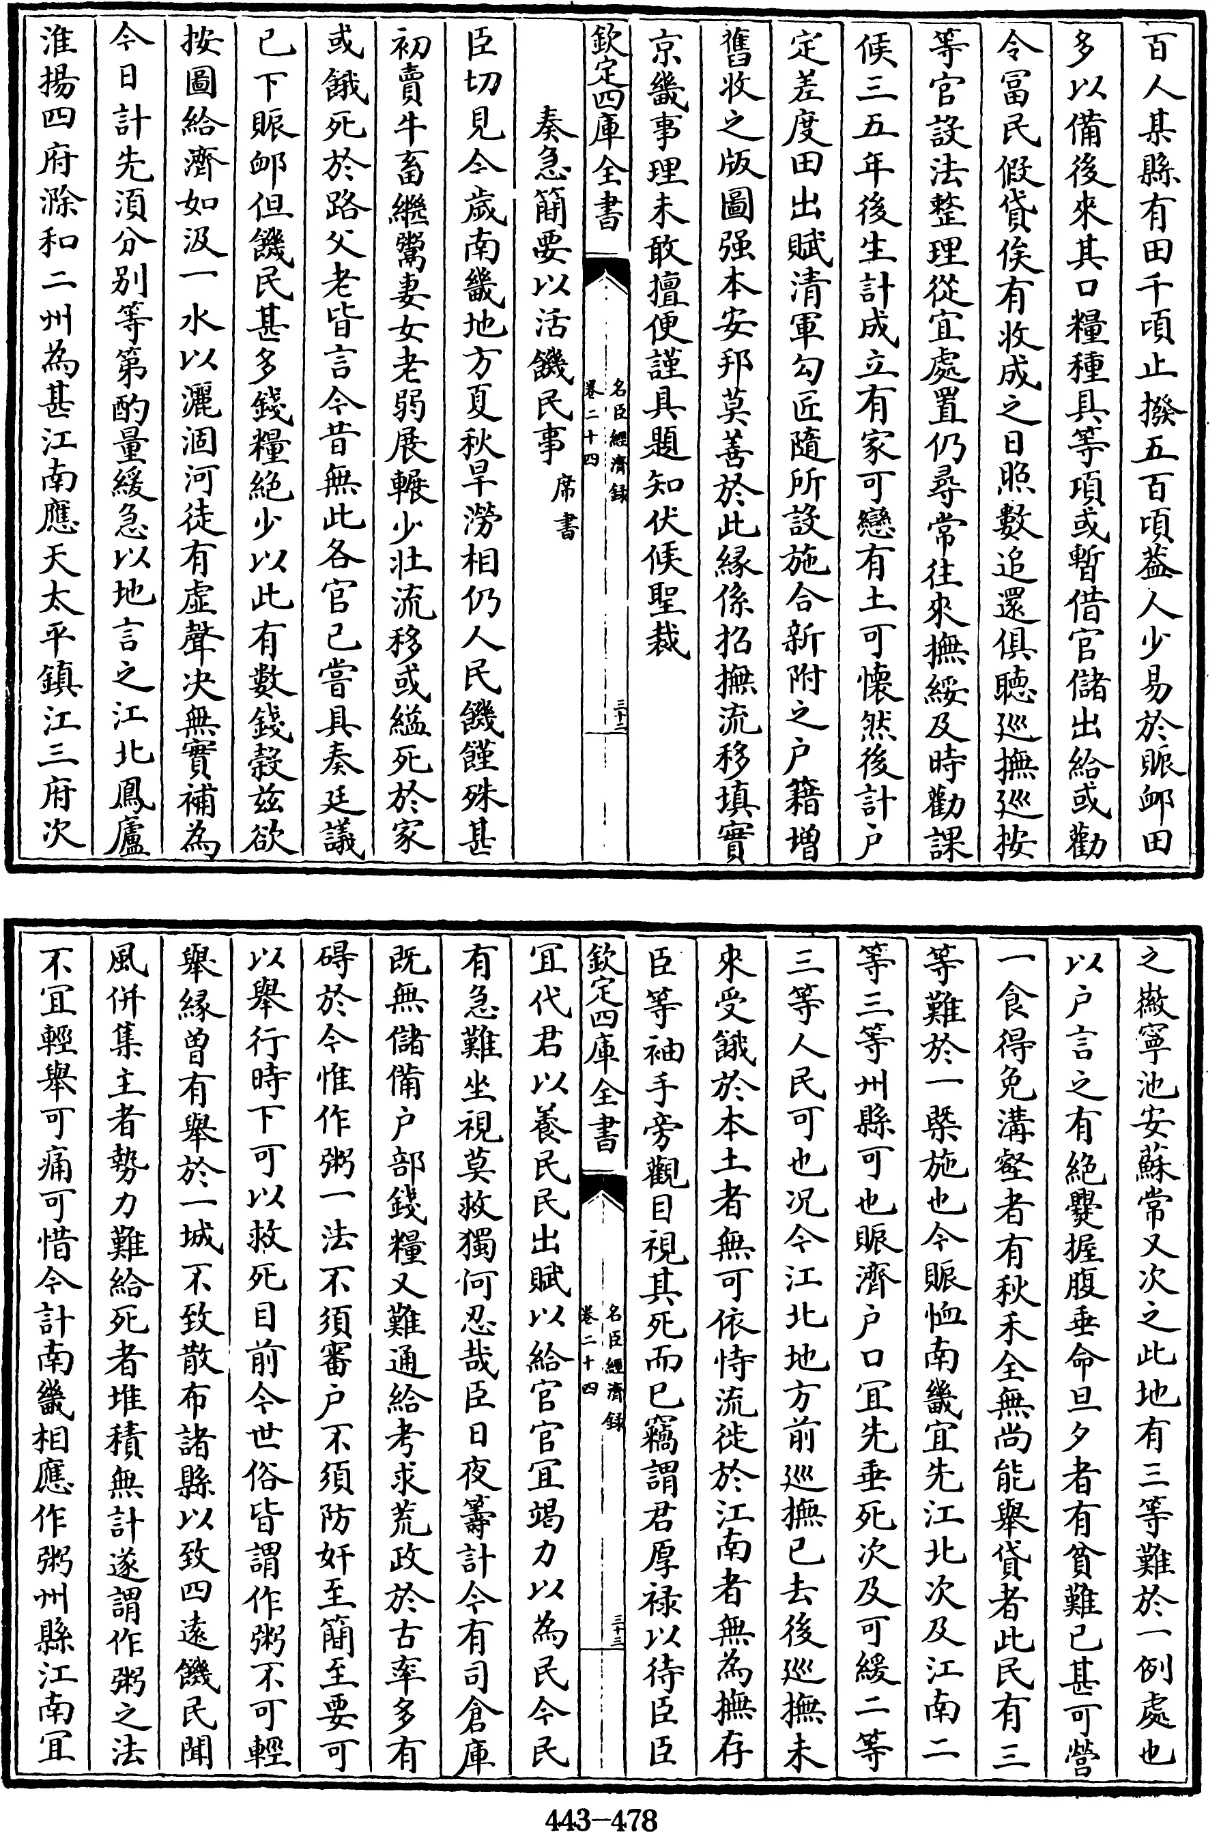 百人某縣有田千頃止撥五百頃葢人少易於賑䘏田
多以備後來其口糧種具等項或暫借官儲出給或勸
令冨民假貸俟有收成之日照數追還俱聴廵撫廵按
等官設法整理從宜處置仍尋常往來撫綏及時勸課
候三五年後生計成立有家可戀有土可懐然後計户
定差度田出賦清軍勾匠隨所設施合新附之户籍増
舊收之版圖强本安邦莫善於此縁係招撫流移填實
京畿事理未敢擅便謹具題知伏候聖裁
欽定四庫全書
名臣經濟録
卷二十四
三十二
奏急簡要以活饑民事 席書
臣切見今歳南畿地方夏秋旱澇相仍人民饑饉殊甚
初賣牛畜繼鬻妻女老弱展轉少壯流移或縊死於家
或餓死於路父老皆言今昔無此各官已嘗具奏廷議
已下賑䘏但饑民甚多錢糧絶少以此有數錢穀兹欲
按圖給濟如汲一水以灑涸河徒有虚聲决無實補為
今日計先湏分别等第酌量緩急以地言之江北鳳廬
淮揚四府滁和二州為甚江南應天太平鎮江三府次
之徽寧池安蘇常又次之此地有三等難於一例處也
以户言之有絶爨握腹垂命旦夕者有貧難已甚可營
一食得免溝壑者有秋禾全無尚能舉貸者此民有三
等難於一槩施也今賑恤南畿宜先江北次及江南二
等三等州縣可也賑濟户口宜先垂死次及可緩二等
三等人民可也况今江北地方前廵撫已去後廵撫未
來受餓於本土者無可依恃流徙於江南者無為撫存
臣等袖手旁觀目視其死而已竊謂君厚禄以待臣臣
欽定四庫全書
名臣經濟録
卷二十四
三十三
宜代君以養民民出賦以給官官宜竭力以為民今民
有急難坐視莫救獨何忍哉臣日夜籌計今有司倉庫
既無儲備户部錢糧又難通給考求荒政於古率多有
碍於今惟作粥一法不須審户不須防奸至簡至要可
以舉行時下可以救死目前今世俗皆謂作粥不可輕
舉縁曽有舉於一城不致散布諸縣以致四遠饑民聞
風併集主者勢力難給死者堆積無計遂謂作粥之法
不宜輕舉可痛可惜今計南畿相應作粥州縣江南宜
443-478